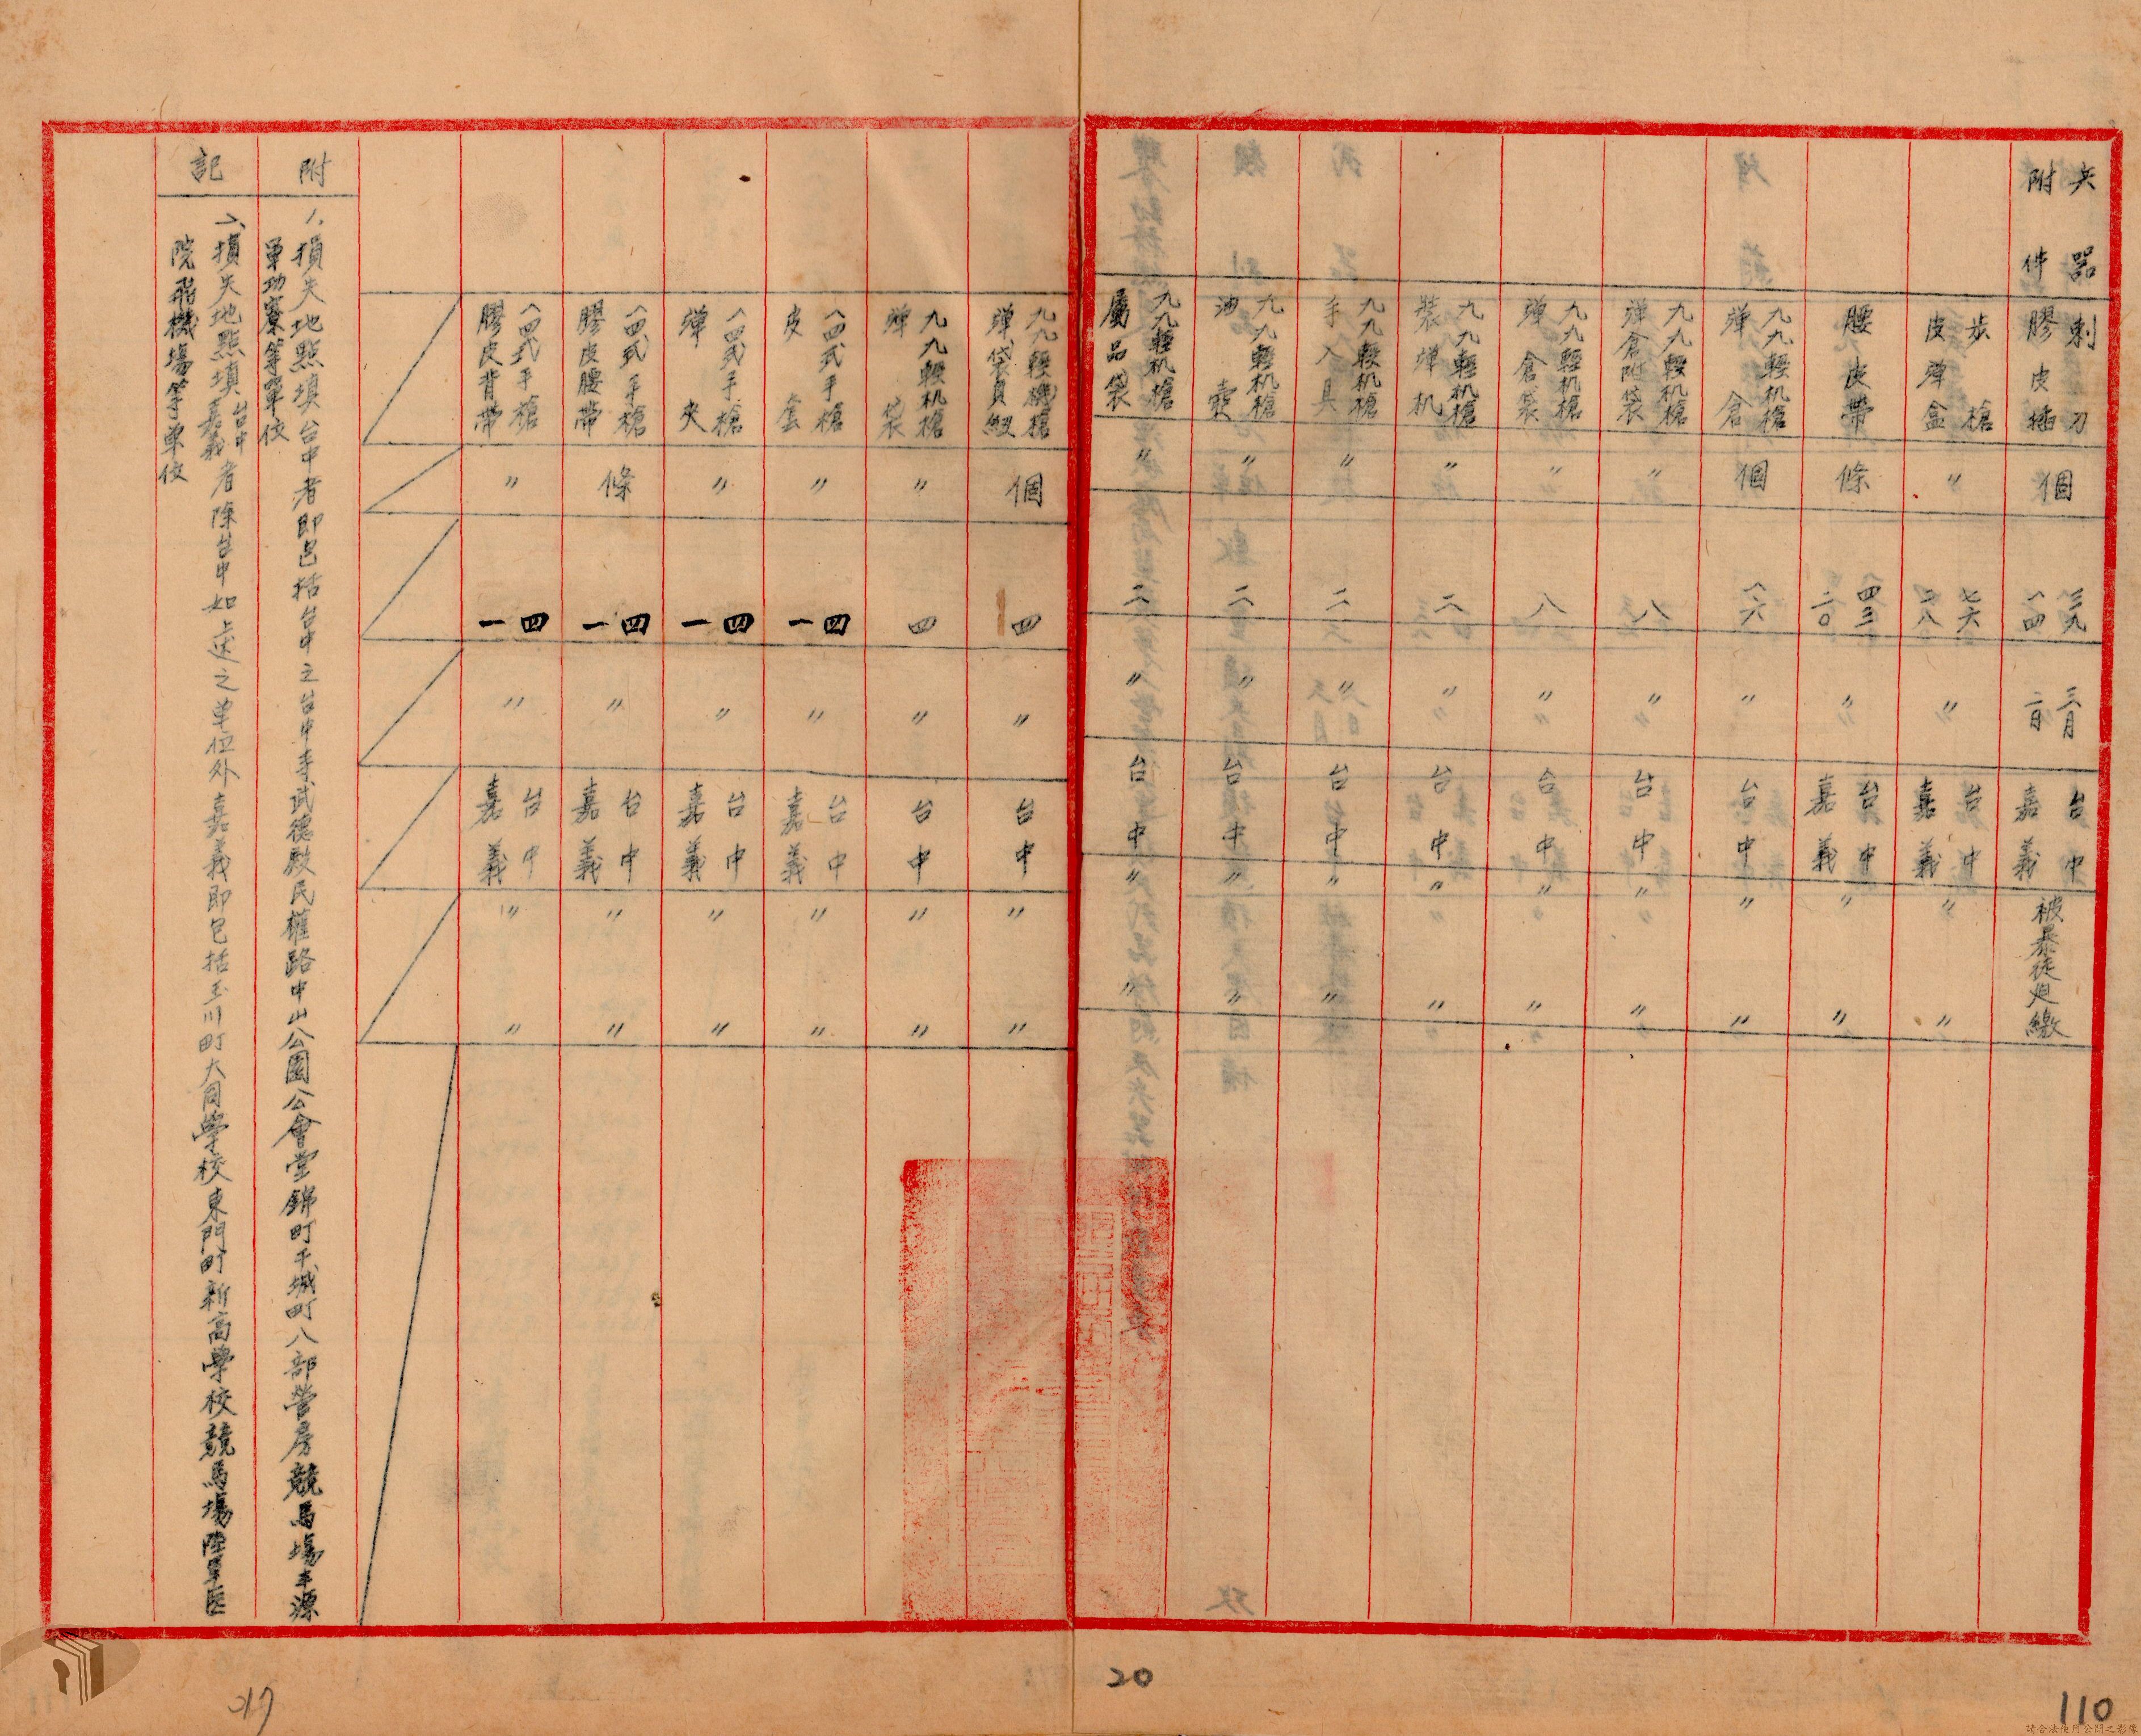 兵器
附件
刺刀
膠皮插
個
三九
一四
三月
二日
台中
嘉義
被暴徒迫繳
步槍
皮彈盒
〃
七六
二八
〃
台中
嘉義
〃
〃
腰皮帶
條
四三
二〇
〃
台中
嘉義
〃
〃
九九輕机槍
彈倉
個
一六
〃
台中
〃
〃
九九輕机槍
彈倉附袋
〃
八
〃
台中
〃
〃
九九輕机槍
彈倉袋
〃
八
〃
台中
〃
〃
九九輕机槍
裝彈机
〃
二
〃
台中
〃
〃
九九輕机槍
手入具
〃
二
〃
台中
〃
〃
九九輕机槍
油壺
〃
二
〃
台中
〃
〃
九九輕机槍
屬品袋
〃
二
〃
台中
〃
〃
九九輕機槍
彈袋負紐
個
四
〃
台中
〃
〃
九九輕机槍
彈袋
〃
四
〃
台中
〃
〃
一四式手槍
皮套
〃
四
一
〃
台中
嘉義
〃
〃
一四式手槍
彈夾
〃
四
一
〃
台中
嘉義
〃
〃
一四式手槍
膠皮腰帶
條
四
一
〃
台中
嘉義
〃
〃
一四式手槍
膠皮背帶
〃
四
一
〃
台中
嘉義
〃
〃
附
1、損失地點填台中者即包括台中之台中寺武德殿民權路中山公園公會堂錦町干城町八部營房競馬場丰源
軍功寮等單位
記
二、損失地點填台中嘉義者除台中如上述之单位外嘉義即包括玉川町大同學校東門町新高學校競馬場陸軍医
院飛機場等单位
017
20
110
請合法使用公開之影像